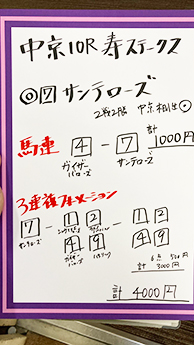 中京10R 寿ステークス
◎7 サンテローズ
2戦2勝 中京
馬連 4 - 7 計 1000円
サンテローズ
3連複フォーメーション
7 - 1 2 - 1 2
4 9 4 9
サンテローズ
6点 500円
計 3000円
計 4000円